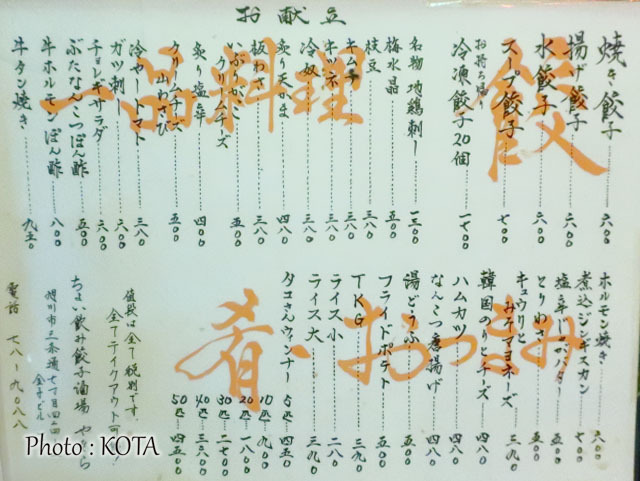 お献立
餃子
焼き餃子 六〇〇
揚げ餃子 六〇〇
水餃子 六〇〇
スープ餃子 七〇〇
お持ち帰り
冷凍餃子20個 一七〇〇
一品料理
名物 地鶏刺し 一三〇〇
梅水晶 五〇〇
枝豆 三八〇
キムチ 三八〇
冷奴 三八〇
板わさ 三八〇
クリームチーズ 五〇〇
炙り塩辛 四〇〇
クリームチーズ山わさび 五〇〇
冷やしトマト 三八〇
ガツ刺し 六〇〇
チョレギサラダ 六〇〇
ぶたなんこつぽん酢 五〇〇
牛ホルモンぽん酢 八〇〇
牛タン焼き 九五〇
肴・おつまみ
ホルモン焼き 六〇〇
煮込ジンギスカン 七〇〇
塩辛バター 五〇〇
とりわさ 五〇〇
キュウリとみそマヨネーズ 三九〇
韓国のりとチーズ 四八〇
ハムカツ 四八〇
なんこつ唐揚げ 四八〇
湯どうふ 五〇〇
フライドポテト 五〇〇
TKG 三九〇
ライス小 二八〇
ライス大 三九〇
タコさんウィンナー 5匹 四五〇
10匹 九〇〇
20匹 一八〇〇
30匹 二七〇〇
40匹 三六〇〇
50匹 四五〇〇
値段は全て税別です
全てテイクアウト可!
ちょい飲み餃子酒場
旭川市三条通七丁目
電話 七八-九〇八八
Photo : KOTA